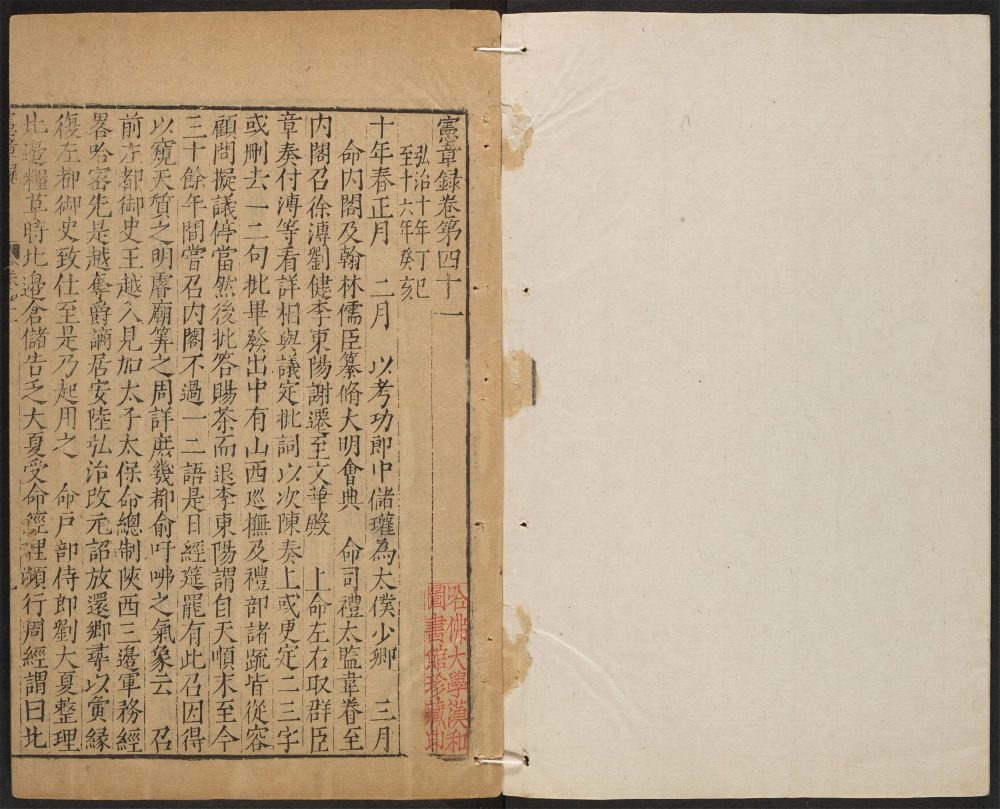 憲章録卷第四十一
弘治十年丁巳
至十六年癸亥
十年春正月 二月 以考功郎中儲瓘為太僕少卿 三月
命内閣及翰林儒臣纂脩大明會典 命司禮太監韋眷至
内閣召徐溥劉健李東陽謝遷至文華殿 上命左右取群臣
章奏付溥等看詳相與議定批詞以次陳奏上或更定二三字
或刪去一二句批畢發出中有山西巡撫及禮部諸疏皆從容
顧問擬議停當然後批答賜茶而退李東陽謂自天順末至今
三十餘年間嘗召内閣不過一二語是日經筵罷有此召因得
以窺天質之明睿廟筭之周詳庶幾都俞吁咈之氣象云 召
前左都御史王越入見加太子太保命總制陝西三邊軍務經
畧哈密先是越奪爵謫居安陸弘治改元詔放還鄉尋以寅縁
復左都御史致仕至是乃起用之 命戶部侍郎劉大夏整理
北邊糧草時北邊倉儲告乏大夏受命經理瀕行周經謂曰北
哈佛大學漢和
圖書館珍藏印